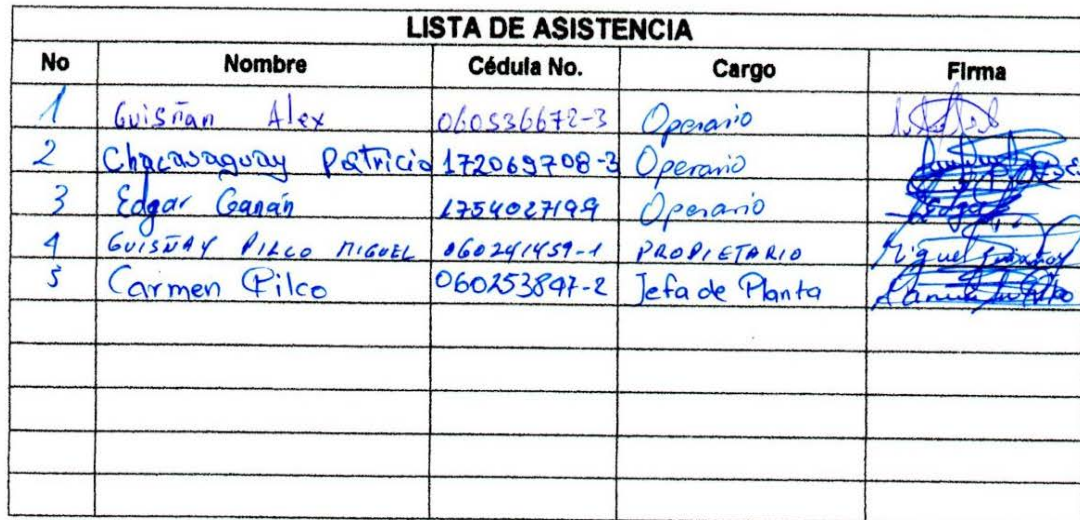 LISTA DE ASISTENCIA
No Nombre Cédula No. Cargo Firma
1 Guisñan Alex 060536672-3 Operario
2 Chacasaguay Patricio 172069708-3 Operario
3 Edgar Ganán 1754027199 Operario
4 GUISÑAY PILCO MIGUEL 060241459-1 PROPIETARIO Miguel Guisñay
5 Carmen Pilco 060253847-2 Jefa de Planta